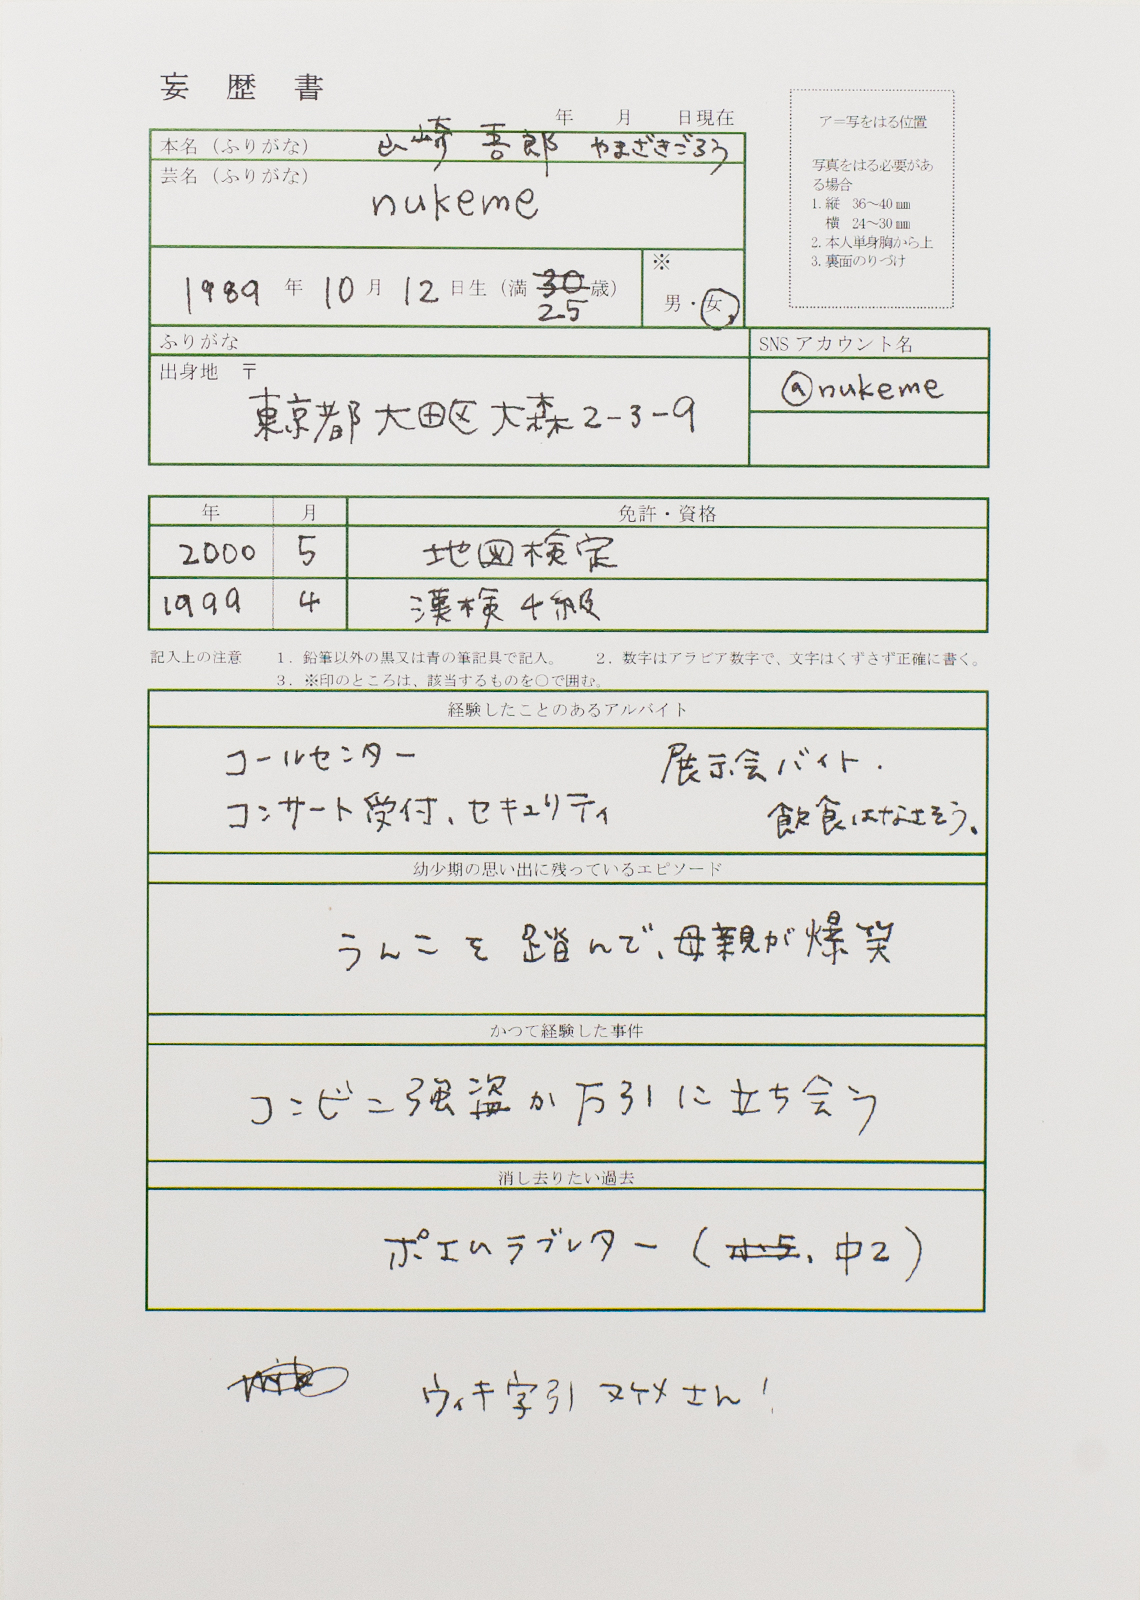 妄歴書
年 月 日現在
本名（ふりがな） 山崎 吾郎 やまざきごろう
芸名（ふりがな）
nukeme
1989 年 10 月 12 日生（満 30 歳）
25
※
男・女
ア＝写をはる位置
写真をはる必要があ
る場合
1. 縦 36～40㎜
横 24～30㎜
2. 本人単身胸から上
3. 裏面のりづけ
ふりがな
出身地 〒
東京都 大田区 大森 2-3-9
SNS アカウント名
@nukeme
年 月 免許・資格
2000 5 地図検定
1999 4 漢検 4級
記入上の注意 1．鉛筆以外の黒又は青の筆記具で記入。 2．数字はアラビア数字で、文字はくずさず正確に書く。
3．※印のところは、該当するものを○で囲む。
経験したことのあるアルバイト
コールセンター 展示会バイト．
コンサート受付、セキュリティ 飲食はなさそう。
幼少期の思い出に残っているエピソード
うんこを踏んで、母親が爆笑
かつて経験した事件
コンビニ強盗か万引に立ち会う
消し去りたい過去
ポエムラブレター（小5、中2）
ウィキ字引 ヌケメさん！